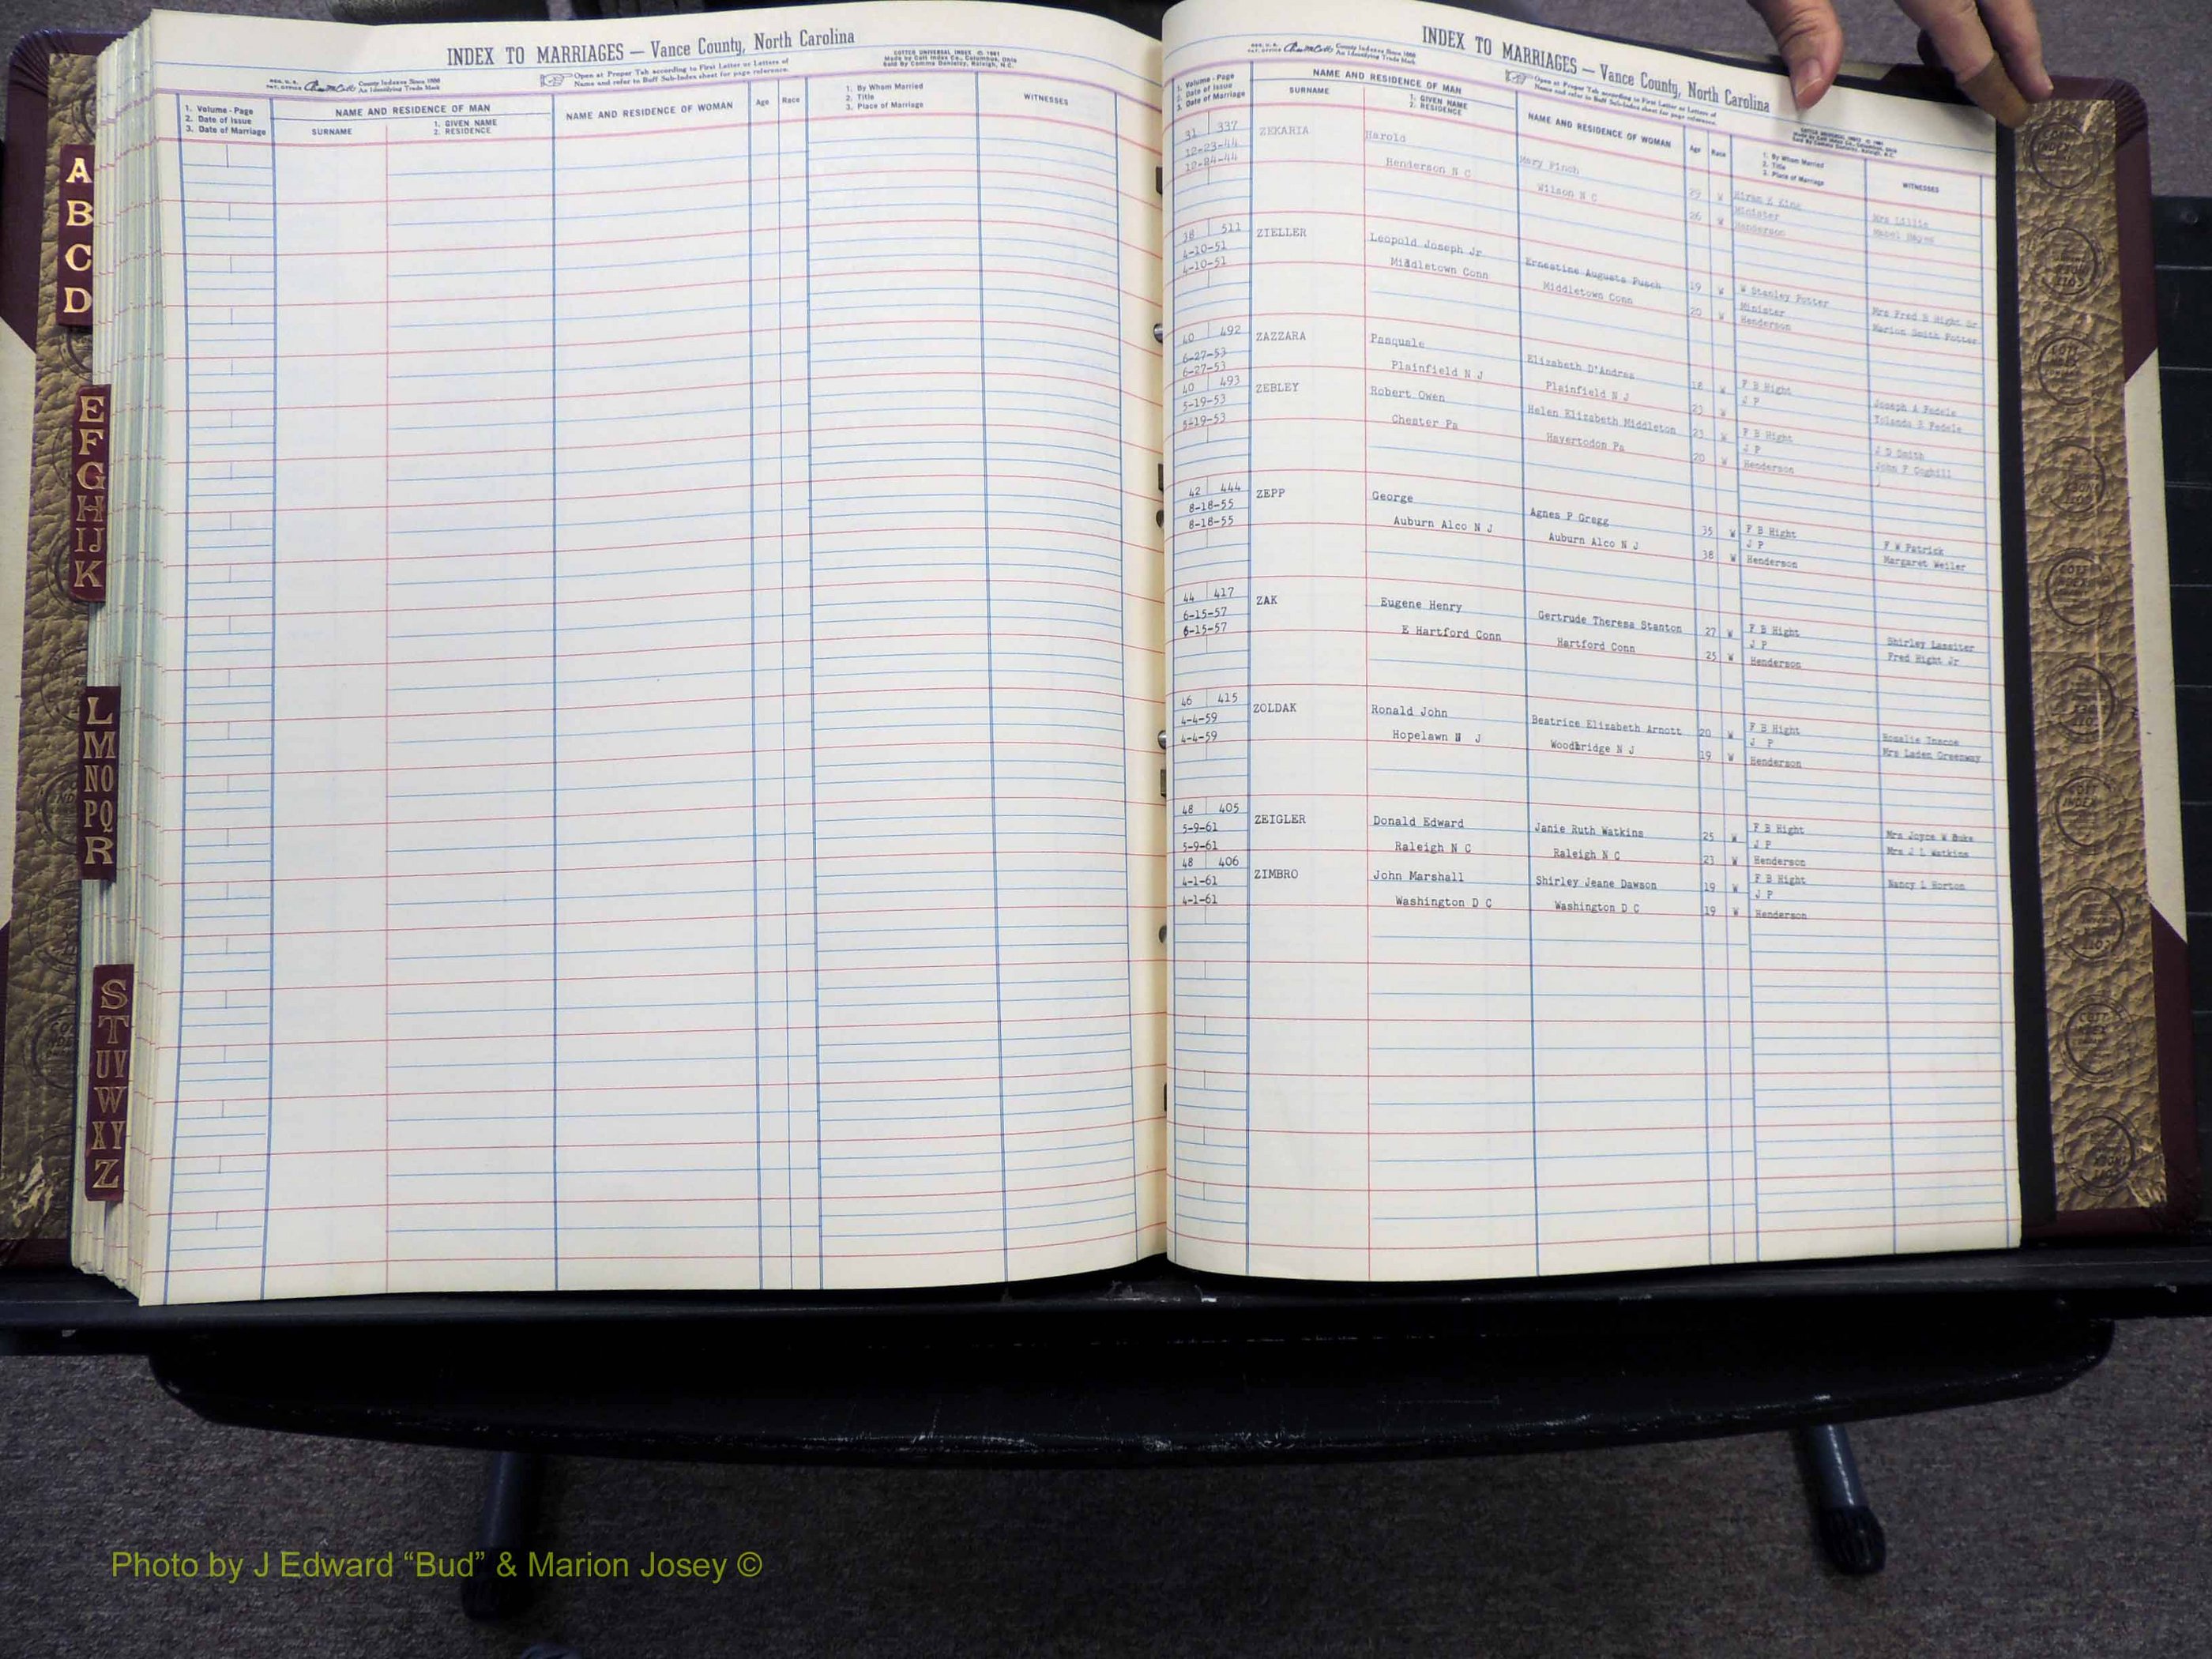 INDEX TO MARRIAGES — Vance County, North Carolina
County Indexes Since 1888
An Identifying Trade Mark
Open at Proper Tab according to First Letter or Letters of
Name and refer to Buff Sub-Index sheet for page reference.
1. Volume - Page
2. Date of Issue
3. Date of Marriage
NAME AND RESIDENCE OF MAN
SURNAME
1. GIVEN NAME
2. RESIDENCE
NAME AND RESIDENCE OF WOMAN
Age
Race
1. By Whom Married
2. Title
3. Place of Marriage
WITNESSES
A
B
C
D
E
F
G
H
IJ
K
L
M
NO
PQ
R
S
T
UV
W
XY
Z
INDEX TO MARRIAGES — Vance County, North Carolina
County Indexes Since 1888
An Identifying Trade Mark
Open at Proper Tab according to First Letter or Letters of
Name and refer to Buff Sub-Index sheet for page reference.
1. Volume - Page
2. Date of Issue
3. Date of Marriage
NAME AND RESIDENCE OF MAN
SURNAME
1. GIVEN NAME
2. RESIDENCE
NAME AND RESIDENCE OF WOMAN
Age
Race
1. By Whom Married
2. Title
3. Place of Marriage
WITNESSES
31 337 ZEKARIA Harold Mary Finch 29 W Hiram E King Mrs Lillie
12-23-44 Henderson N C Wilson N C 26 W Minister Mabel Hayes
12-24-44 Henderson
38 511 ZIELLER Leopold Joseph Jr Ernestine Augusta Pusch 19 W W Stanley Potter Mrs Fred B Hight Sr
4-10-51 Middletown Conn Middletown Conn 20 W Minister Marion Smith Potter
4-10-51 Henderson
40 492 ZAZZARA Pasquale Elizabeth D'Andrea 18 W F B Hight Joseph A Fedele
6-27-53 Plainfield N J Plainfield N J 23 W J P Yolanda E Fedele
6-27-53
40 493 ZEBLEY Robert Owen Helen Elizabeth Middleton 23 W F B Hight J D Smith
5-19-53 Chester Pa Havertodon Pa 20 W J P John F Coghill
5-19-53 Henderson
42 444 ZEPP George Agnes P Gregg 35 W F B Hight F W Patrick
8-18-55 Auburn Alco N J Auburn Alco N J 38 W J P Margaret Weiler
8-18-55 Henderson
44 417 ZAK Eugene Henry Gertrude Theresa Stanton 27 W F B Hight Shirley Lassiter
6-15-57 E Hartford Conn Hartford Conn 25 W J P Fred Hight Jr
6-15-57 Henderson
46 415 ZOLDAK Ronald John Beatrice Elizabeth Arnott 20 W F B Hight Rosalie Inscoe
4-4-59 Hopelawn N J Woodbridge N J 19 W J P Mrs Laden Greenway
4-4-59 Henderson
48 405 ZEIGLER Donald Edward Janie Ruth Watkins 25 W F B Hight Mrs Joyce W Duke
5-9-61 Raleigh N C Raleigh N C 23 W J P Mrs J L Watkins
5-9-61 Henderson
48 406 ZIMBRO John Marshall Shirley Jeane Dawson 19 W F B Hight Nancy L Horton
4-1-61 Washington D C Washington D C 19 W J P
4-1-61 Henderson
Photo by J Edward “Bud” & Marion Josey ©